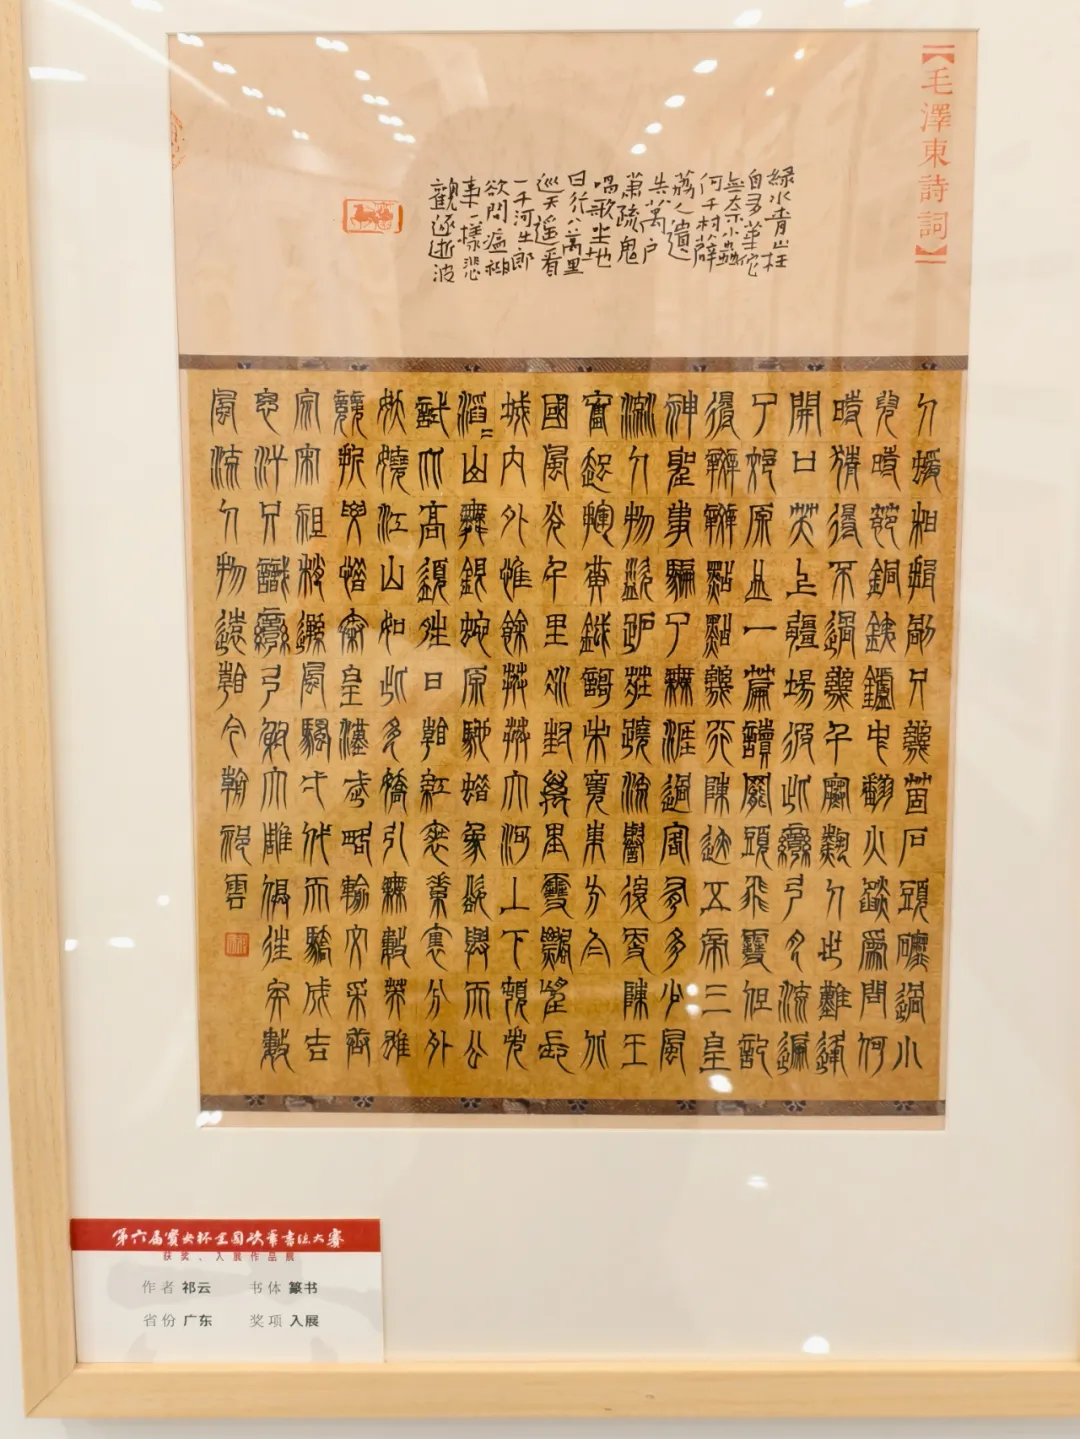 【毛澤東詩詞】
綠水青山枉
自多華佗
無奈小蟲
何千村薜
荔人遺
失萬户
蕭疏鬼
唱歌坐地
日行八萬里
巡天遥看
一千河牛郎
欲問瘟神
事一樣悲
觀逐逝波
人猨相揖别只幾箇石頭磨過小
兒時節銅鐵鑪中翻火焰爲問何
時猜得不過幾千寒熱人世難逢
開口笑上疆場彼此彎弓月流遍
了郊原血一篇讀罷頭飛雪但記
得斑斑點點幾行陳跡五帝三皇
神聖事騙了無涯過客有多少風
流人物盜跖莊蹻流譽後更陳王
奮起揮黄鉞謌未竟東方白 北
國風光千里冰封萬里雪飄望長
城内外惟餘莽莽大河上下頓失
滔〻山舞銀蛇原馳蠟象欲與天公
試比高須晴日看紅妝素裹分外
妖嬈江山如此多嬌引無數英雄
競折腰惜秦皇漢武略輸文采唐
宗宋祖稍遜風騷一代天驕成吉
思汗只識彎弓射大雕俱往矣數
風流人物還看今朝祁雲
第六届寶安杯全國硬筆書法大賽
获奖、入展作品展
作者 祁云 书体 篆书
省份 广东 奖项 入展